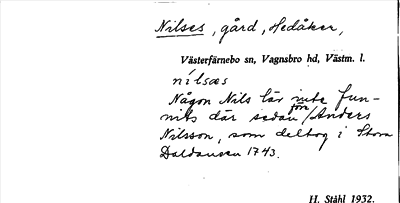 Nilses, gård, Hedåker,
Västerfärnebo sn, Vagnsbro hd, Västm. l.
nílsæs
Någon Nils lär inte fun-
nits där sedan / Anders
före
Nilsson, som deltog i Stora
Daldansen 1743.
H. Ståhl 1932.